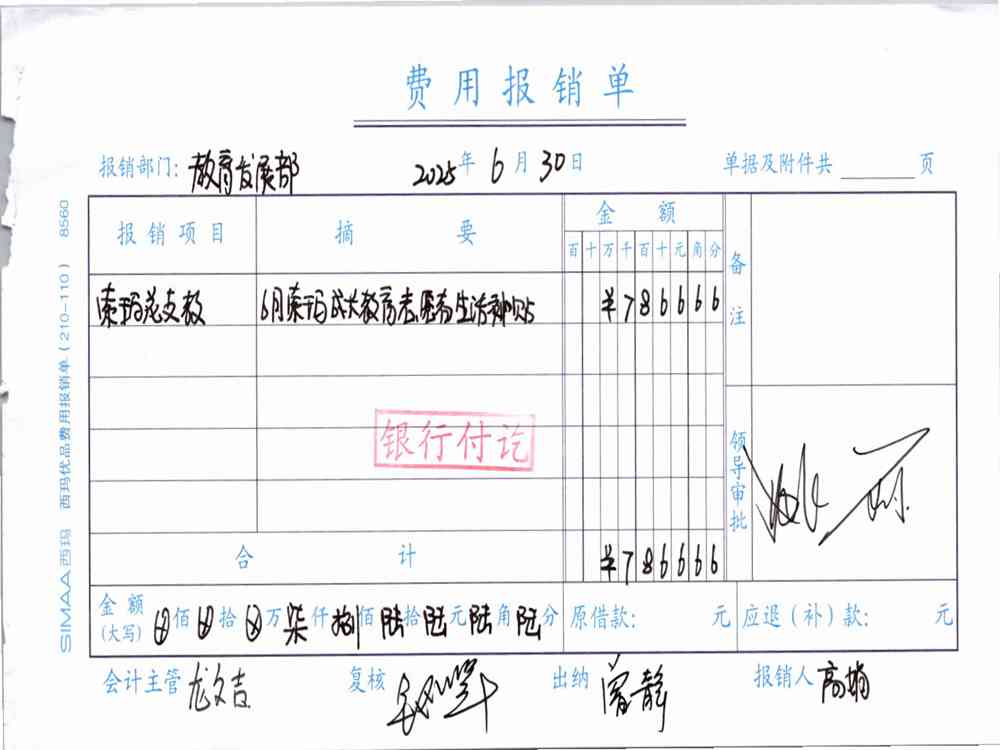 费用报销单
报销部门: 教育发展部 2025年 6月 30日 单据及附件共 页
报销项目 摘要 金额 备注
百十万千百十元角分
索玛花支教 6月索玛成长教育志愿者生活补贴 ¥786666
银行付讫
领导审批
合计 ¥786666
金额(大写) ⊗佰⊗拾⊗万柒仟捌佰陆拾陆元陆角陆分 原借款: 元 应退(补)款: 元
会计主管 龙文吉 复核 出纳 曾静 报销人 高娟
SIMAA西玛 西玛优品费用报销单(210-110) 8560